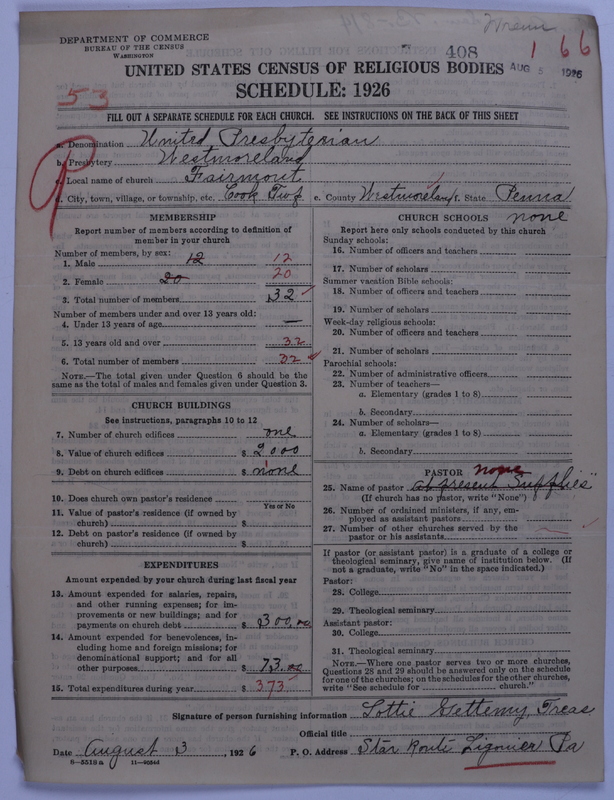 DEPARTMENT OF COMMERCE
BUREAU OF THE CENSUS
WASHINGTON
408
1 66
AUG 5 1926
UNITED STATES CENSUS OF RELIGIOUS BODIES
53
SCHEDULE: 1926
FILL OUT A SEPARATE SCHEDULE FOR EACH CHURCH. SEE INSTRUCTIONS ON THE BACK OF THIS SHEET
a. Denomination United Presbyterian
b. Presbytery Westmoreland
c. Local name of church Fairmount
d. City, town, village, or township, etc. Cook Twp e. County Westmoreland f. State Penna
MEMBERSHIP
Report number of members according to definition of
member in your church
Number of members, by sex:
1. Male 12 12
2. Female 20 20
3. Total number of members 32
Number of members under and over 13 years old:
4. Under 13 years of age —
5. 13 years old and over 32
6. Total number of members 32
NOTE.—The total given under Question 6 should be
same as the total of males and females given under Question 3.
CHURCH BUILDINGS
See instructions, paragraphs 10 to 12
7. Number of church edifices one
8. Value of church edifices $ 2000
9. Debt on church edifices $ none
10. Does church own pastor's residence
Yes or No
11. Value of pastor's residence (if owned by
church) $
12. Debt on pastor's residence (if owned by
church) $
EXPENDITURES
Amount expended by your church during last fiscal year
13. Amount expended for salaries, repairs,
and other running expenses; for im-
provements or new buildings; and for
payments on church debt $ 300.00
14. Amount expended for benevolences, in-
cluding home and foreign missions; for
denominational support; and for all
other purposes $ 73.00
15. Total expenditures during year $ 373
CHURCH SCHOOLS none
Report here only schools conducted by this church
Sunday schools:
16. Number of officers and teachers
17. Number of scholars
Summer vacation Bible schools:
18. Number of officers and teachers
19. Number of scholars
Week-day religious schools:
20. Number of officers and teachers
21. Number of scholars
Parochial schools:
22. Number of administrative officers
23. Number of teachers—
a. Elementary (grades 1 to 8)
b. Secondary
24. Number of scholars—
a. Elementary (grades 1 to 8)
b. Secondary
PASTOR none
25. Name of pastor at present Supplies"
(If church has no pastor, write "None")
26. Number of ordained ministers, if any, em-
ployed as assistant pastors
27. Number of other churches served by the
pastor or his assistants
If pastor (or assistant pastor) is a graduate of a college or
theological seminary, give name of institution below. (If
not a graduate, write "No" in the space indicated.)
Pastor:
28. College
29. Theological seminary
Assistant pastor:
30. College
31. Theological seminary
NOTE.—Where one pastor serves two or more churches,
Questions 28 and 29 should be answered only on the schedule
for one of the churches; on the schedules for the other churches,
write "See schedule for church."
Signature of person furnishing information Lottie Gettemy, Treas
Official title
Date August 3, 1926 P. O. Address Star Route Ligonier Pa
8—5518a 11—9034d